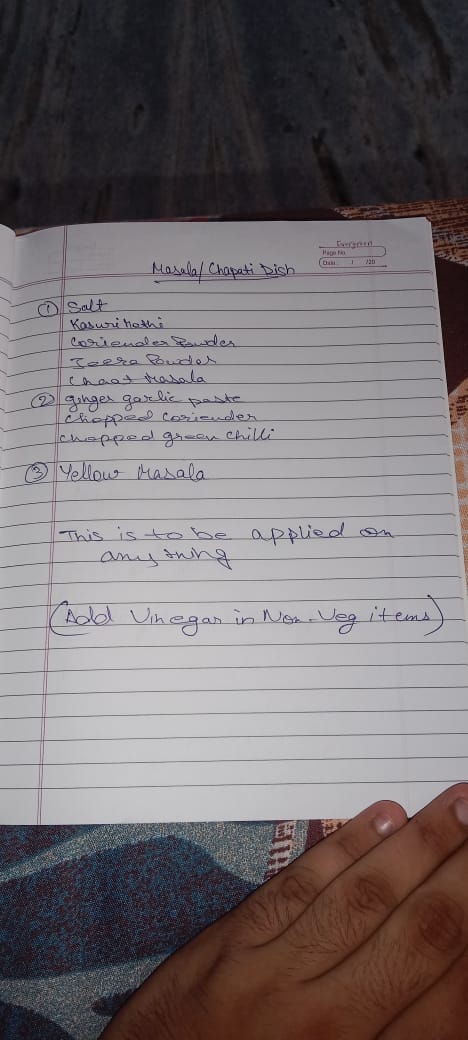 Evergreen
Page No.
Date: / /20
Masala/Chapati Dish
① Salt
Kasuri Methi
Coriender Powder
Jeera Powder
Chaat Masala
② ginger garlic paste
chopped coriender
chopped green chilli
③ Yellow Masala
This is to be applied on
any thing
(Add Vinegar in Non-Veg items)